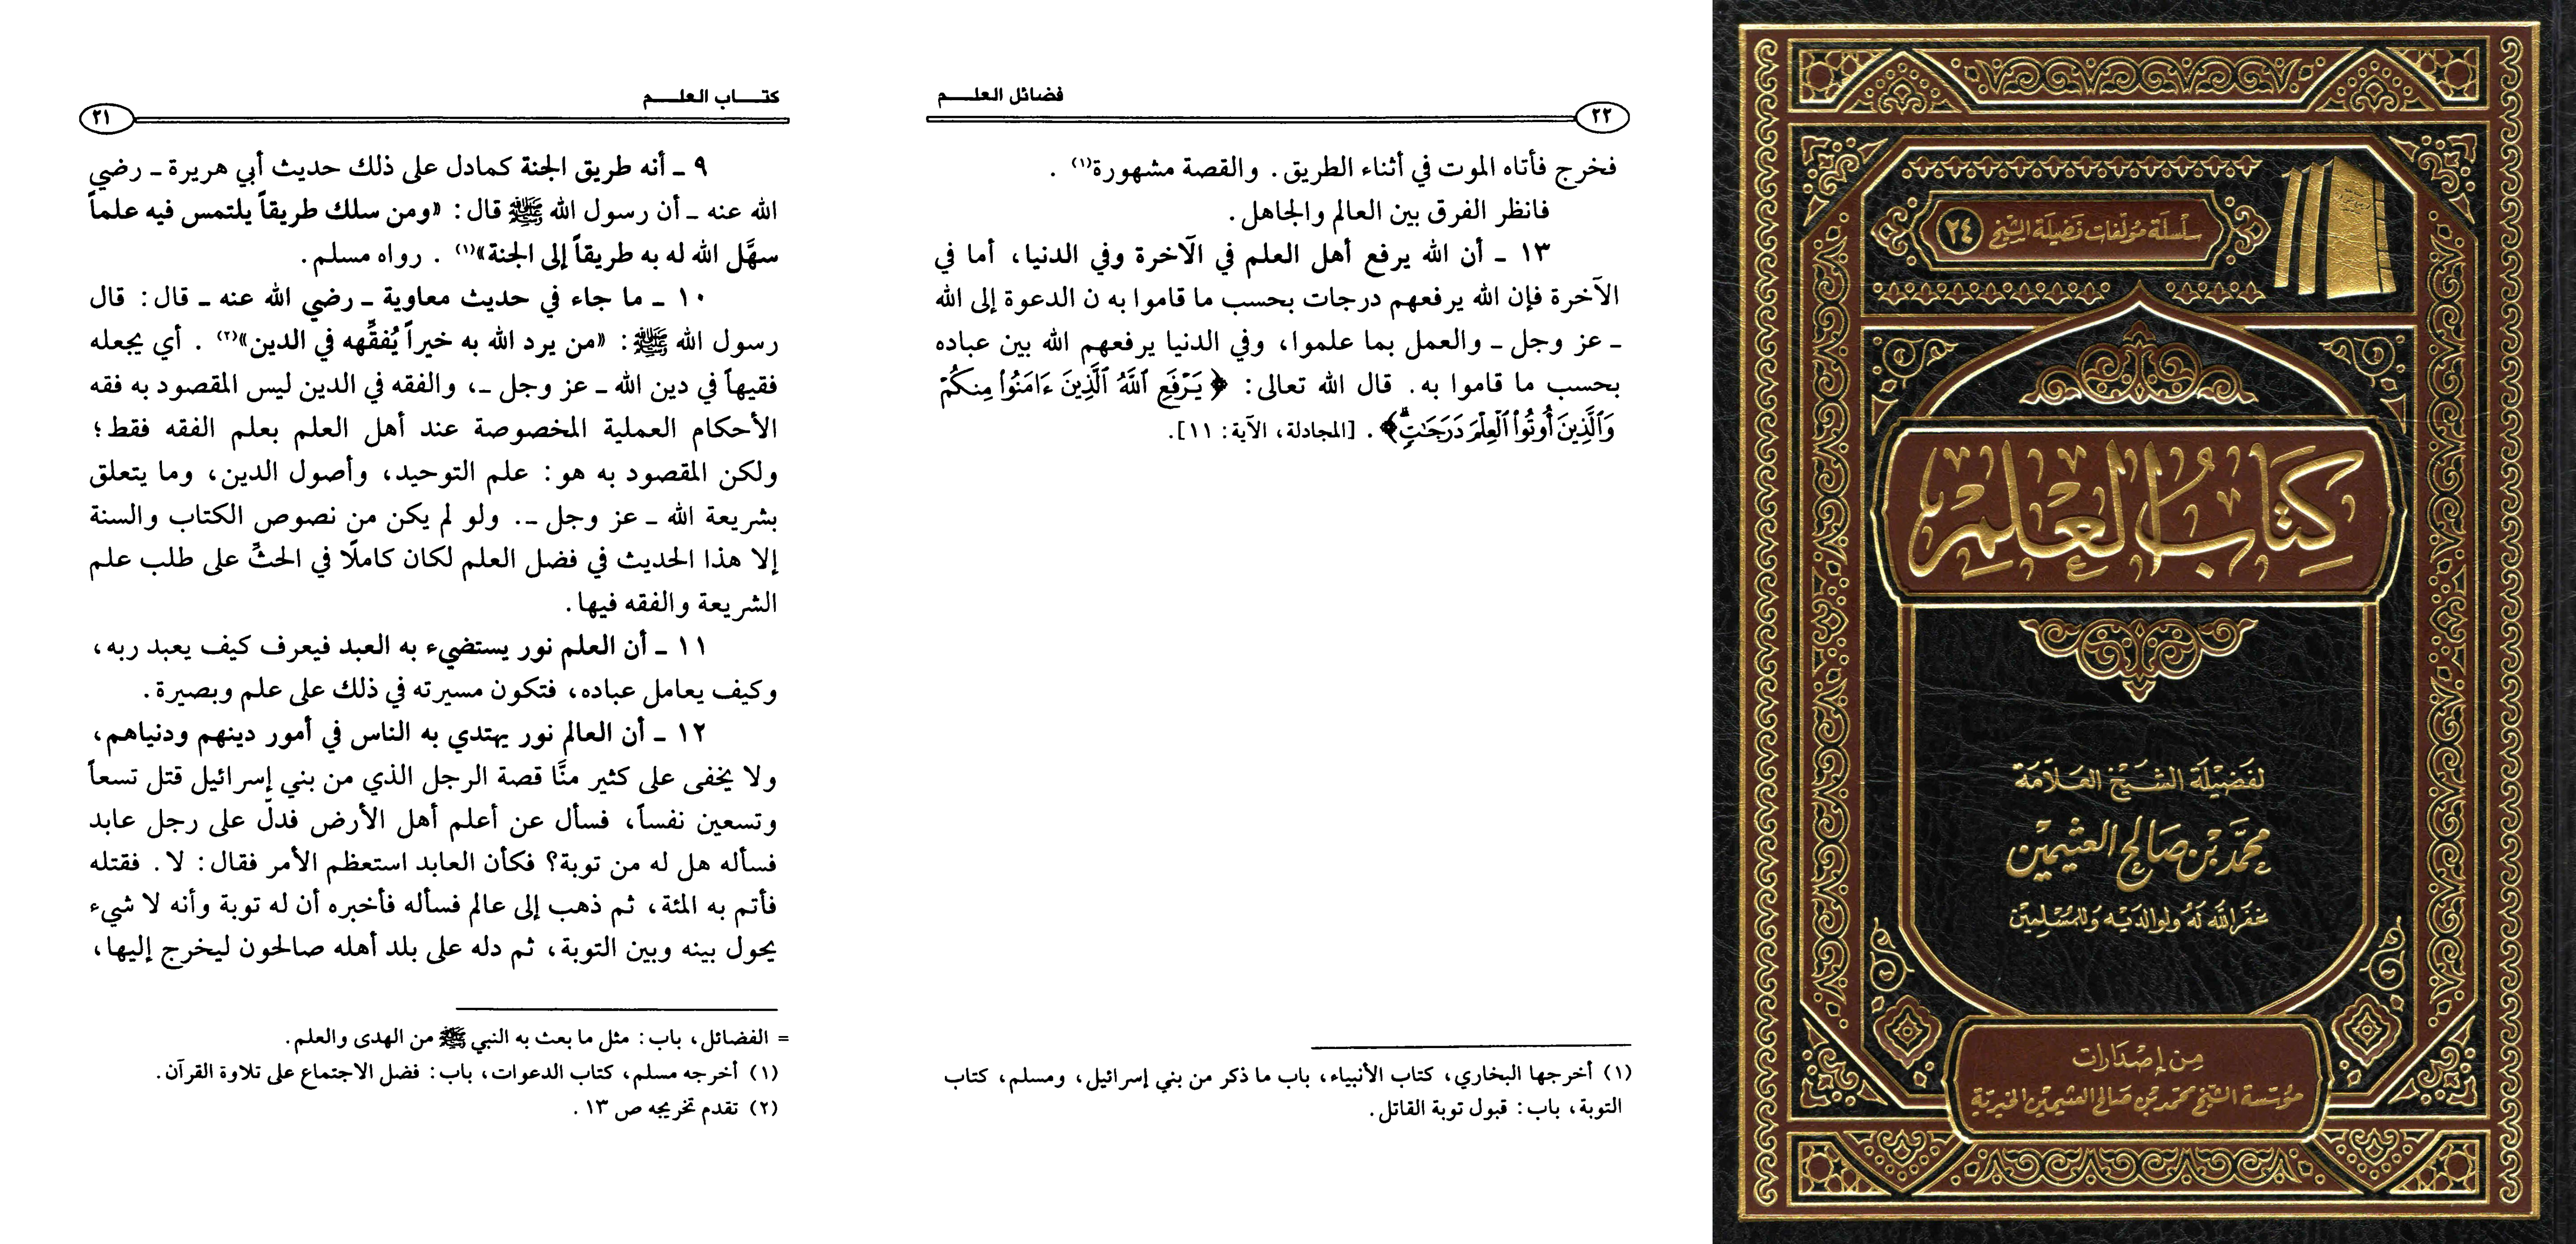 كتـــاب العلـــم
٢١
٩ ـ أنه طريق الجنة كمادل على ذلك حديث أبي هريرة ـ رضي
الله عنه ـ أن رسول الله ﷺ قال: «ومن سلك طريقاً يلتمس فيه علماً
سهَّل الله له به طريقاً إلى الجنة»(١) . رواه مسلم.
١٠ ـ ما جاء في حديث معاوية ـ رضي الله عنه ـ قال: قال
رسول الله ﷺ: «من يرد الله به خيراً يُفقِّهه في الدين»(٢) . أي يجعله
فقيهاً في دين الله ـ عز وجل ـ، والفقه في الدين ليس المقصود به فقه
الأحكام العملية المخصوصة عند أهل العلم بعلم الفقه فقط؛
ولكن المقصود به هو: علم التوحيد، وأصول الدين، وما يتعلق
بشريعة الله ـ عز وجل ـ. ولو لم يكن من نصوص الكتاب والسنة
إلا هذا الحديث في فضل العلم لكان كاملًا في الحثِّ على طلب علم
الشريعة والفقه فيها.
١١ ـ أن العلم نور يستضيء به العبد فيعرف كيف يعبد ربه،
وكيف يعامل عباده، فتكون مسيرته في ذلك على علم وبصيرة.
١٢ ـ أن العالم نور يهتدي به الناس في أمور دينهم ودنياهم،
ولا يخفى على كثير منَّا قصة الرجل الذي من بني إسرائيل قتل تسعاً
وتسعين نفساً، فسأل عن أعلم أهل الأرض فدلّ على رجل عابد
فسأله هل له من توبة؟ فكأن العابد استعظم الأمر فقال: لا. فقتله
فأتم به المئة، ثم ذهب إلى عالم فسأله فأخبره أن له توبة وأنه لا شيء
يحول بينه وبين التوبة، ثم دله على بلد أهله صالحون ليخرج إليها،
= الفضائل، باب: مثل ما بعث به النبي ﷺ من الهدى والعلم.
(١) أخرجه مسلم، كتاب الدعوات، باب: فضل الاجتماع على تلاوة القرآن.
(٢) تقدم تخريجه ص ١٣.
٢٢
فضائل العلـــم
فخرج فأتاه الموت في أثناء الطريق. والقصة مشهورة(١) .
فانظر الفرق بين العالم والجاهل.
١٣ ـ أن الله يرفع أهل العلم في الآخرة وفي الدنيا، أما في
الآخرة فإن الله يرفعهم درجات بحسب ما قاموا به ن الدعوة إلى الله
ـ عز وجل ـ والعمل بما علموا، وفي الدنيا يرفعهم الله بين عباده
بحسب ما قاموا به. قال الله تعالى: ﴿ يَرْفَعِ ٱللَّهُ ٱلَّذِينَ ءَامَنُوا۟ مِنكُمْ
وَٱلَّذِينَ أُوتُوا۟ ٱلْعِلْمَ دَرَجَـٰتٍ ۚ﴾ . [المجادلة، الآية: ١١].
(١) أخرجها البخاري، كتاب الأنبياء، باب ما ذكر من بني إسرائيل، ومسلم، كتاب
التوبة، باب: قبول توبة القاتل.
سلسلة مؤلفات فضيلة الشيخ ٢٤
كتاب العلم
لفضيلة الشيخ العلامة
محمد بن صالح العثيمين
غفر الله له ولوالديه وللمسلمين
من إصدارات
مؤسسة الشيخ محمد بن صالح العثيمين الخيرية